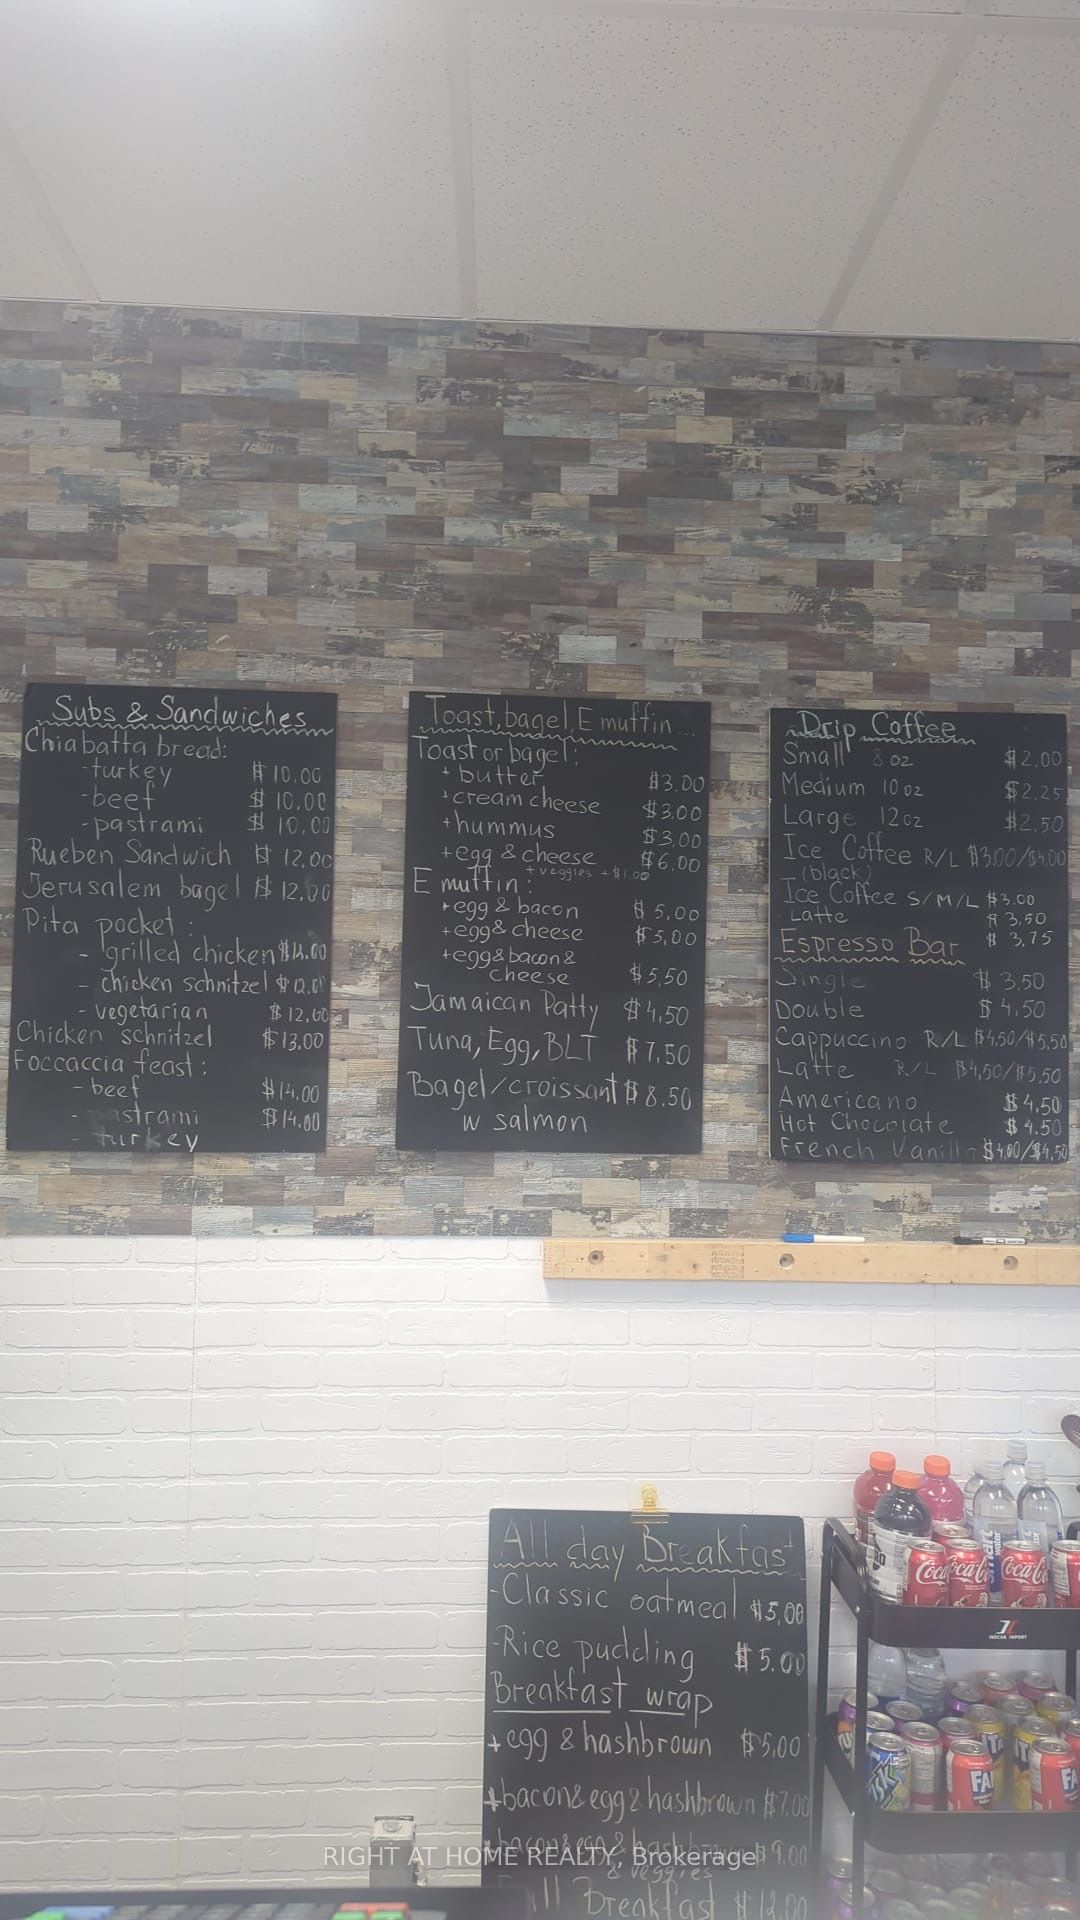 Subs & Sandwiches
Chiabatta bread:
-turkey $10.00
-beef $10.00
-pastrami $10.00
Rueben Sandwich $12,00
Jerusalem bagel $12,00
Pita pocket:
- grilled chicken
- chicken schnitzel $12.00
- vegetarian $12,00
Chicken schnitzel $13,00
Foccaccia feast:
- beef $14.00
- pastrami $14.00
- turkey
Toast, bagel, E muffin...
Toast or bagel:
+ butter $3.00
+ cream cheese $3.00
+ hummus $3,00
+ egg & cheese $6,00
+ veggies +$1.00
E muffin:
+ egg & bacon $5,00
+ egg & cheese $5,00
+ egg & bacon &
cheese $5,50
Jamaican Patty $4,50
Tuna, Egg, BLT $7.50
Bagel/croissant $8.50
w salmon
Drip Coffee
Small 8 oz $2.00
Medium 10 oz $2.25
Large 12 oz $2.50
Ice Coffee R/L $3.00/$4,00
(black)
Ice Coffee S/M/L $3.00
Latte $3,50
$3,75
Espresso Bar
Single $3,50
Double $4,50
Cappuccino R/L $4,50/$5,50
Latte R/L $4,50/$5,50
Americano $4,50
Hot Chocolate $4.50
French Vanilla $4,00/$4,50
All day Breakfast
-Classic oatmeal $5,00
-Rice pudding $5.00
Breakfast wrap
+ egg & hashbrown $5,00
+ bacon & egg & hashbrown $7,00
+ bacon & egg & hashbrown $9,00
& veggies
Full Breakfast $12,00
Coca-Cola
Coca-Cola
Coca-Cola
smart
water
INSCAR IMPORT
FA
FA
RIGHT AT HOME REALTY, Brokerage